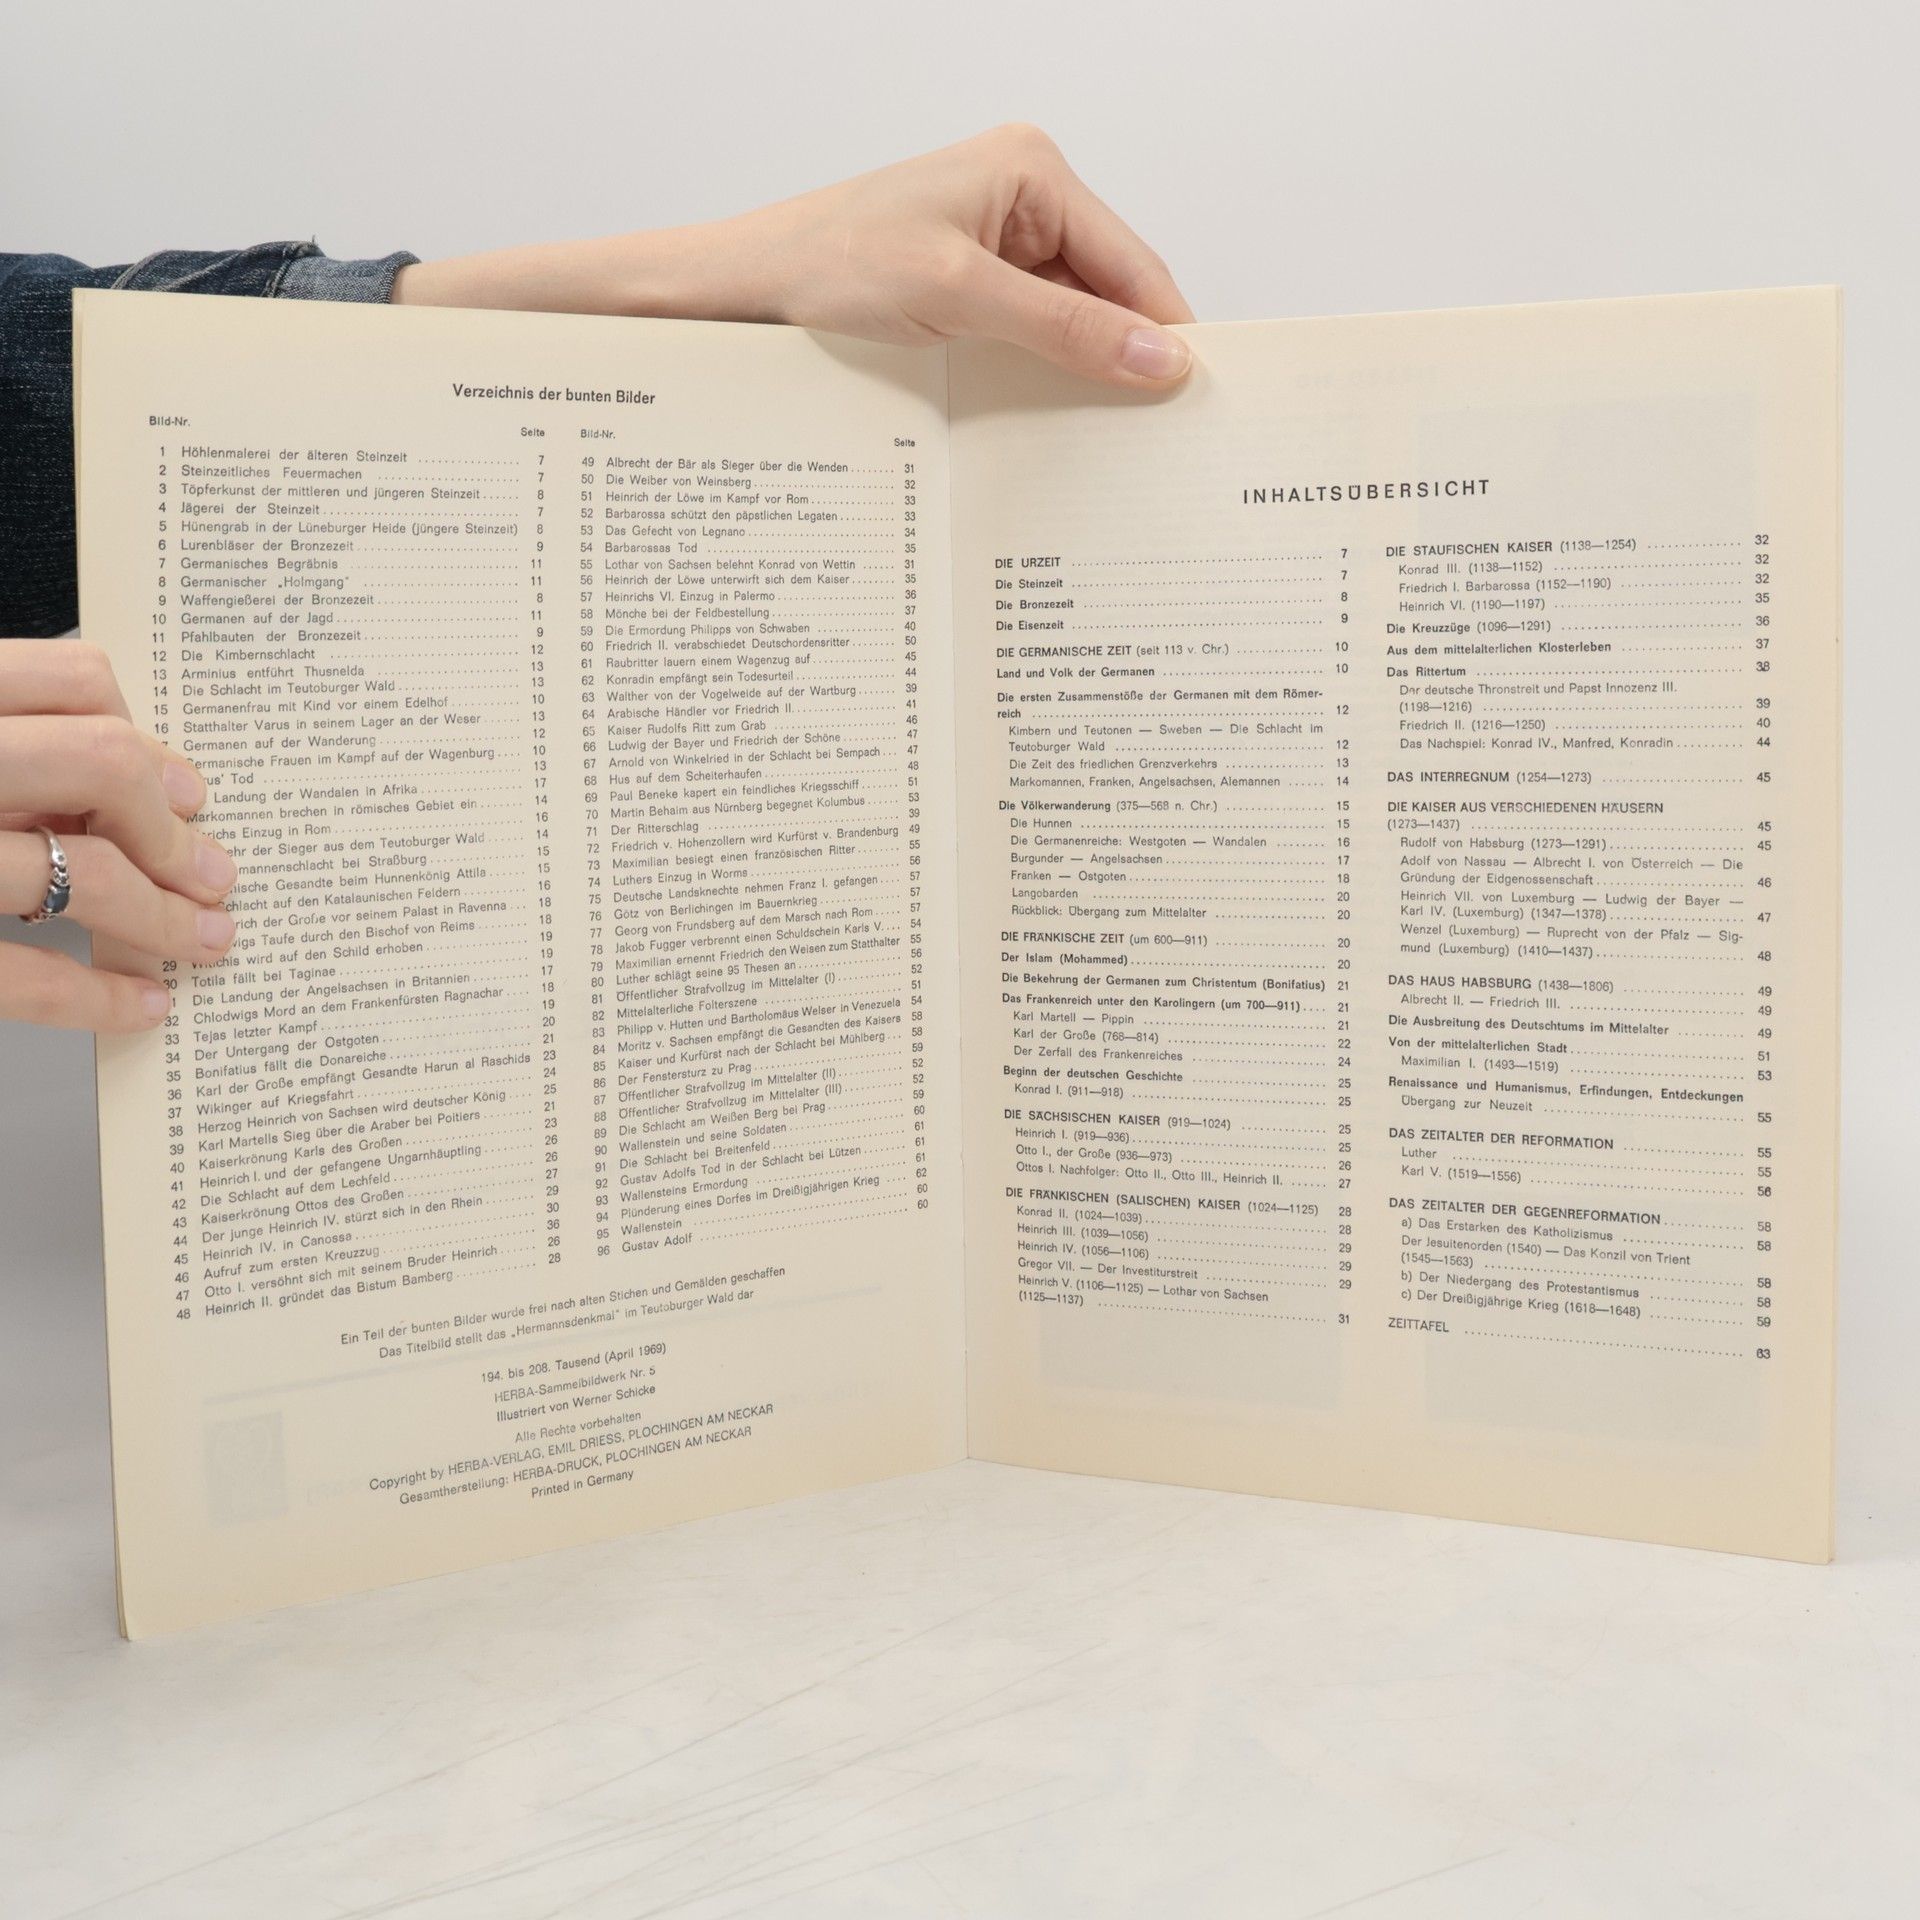 Verzeichnis der bunten Bilder
Bild-Nr. Seite
1 Höhlenmalerei der älteren Steinzeit 7
2 Steinzeitliches Feuermachen 7
3 Töpferkunst der mittleren und jüngeren Steinzeit 8
4 Jägerei der Steinzeit 7
5 Hünengrab in der Lüneburger Heide (jüngere Steinzeit) 8
6 Lurenbläser der Bronzezeit 9
7 Germanisches Begräbnis 11
8 Germanischer „Holmgang" 11
9 Waffengießerei der Bronzezeit 8
10 Germanen auf der Jagd 11
11 Pfahlbauten der Bronzezeit 9
12 Die Kimbernschlacht 12
13 Arminius entführt Thusnelda 13
14 Die Schlacht im Teutoburger Wald 13
15 Germanenfrau mit Kind vor einem Edelhof 10
16 Statthalter Varus in seinem Lager an der Weser 13
Germanen auf der Wanderung 12
Germanische Frauen im Kampf auf der Wagenburg 10
Tod 13
Landung der Wandalen in Afrika 17
Markomannen brechen in römisches Gebiet ein 14
Einzug in Rom 16
der Sieger aus dem Teutoburger Wald 14
bei Straßburg 15
Gesandte beim Hunnenkönig Attila 15
Schlacht auf den Katalaunischen Feldern 16
der Große vor seinem Palast in Ravenna 18
Taufe durch den Bischof von Reims 18
29 Witichis wird auf den Schild erhoben 19
30 Totila fällt bei Taginae 19
Die Landung der Angelsachsen in Britannien 17
32 Chlodwigs Mord an dem Frankenfürsten Ragnachar 18
33 Tejas letzter Kampf 19
34 Der Untergang der Ostgoten 20
35 Bonifatius fällt die Donareiche 21
36 Karl der Große empfängt Gesandte Harun al Raschids 23
37 Wikinger auf Kriegsfahrt 24
38 Herzog Heinrich von Sachsen wird deutscher König 25
39 Karl Martells Sieg über die Araber bei Poitiers 21
40 Kaiserkrönung Karls des Großen 23
41 Heinrich I. und der gefangene Ungarnhäuptling 26
42 Die Schlacht auf dem Lechfeld 26
43 Kaiserkrönung Ottos des Großen 27
44 Der junge Heinrich IV. stürzt sich in den Rhein 29
45 Heinrich IV. in Canossa 30
46 Aufruf zum ersten Kreuzzug 36
47 Otto I. versöhnt sich mit seinem Bruder Heinrich 26
48 Heinrich II. gründet das Bistum Bamberg 28
Bild-Nr. Seite
49 Albrecht der Bär als Sieger über die Wenden 31
50 Die Weiber von Weinsberg 32
51 Heinrich der Löwe im Kampf vor Rom 33
52 Barbarossa schützt den päpstlichen Legaten 33
53 Das Gefecht von Legnano 34
54 Barbarossas Tod 35
55 Lothar von Sachsen belehnt Konrad von Wettin 31
56 Heinrich der Löwe unterwirft sich dem Kaiser 35
57 Heinrichs VI. Einzug in Palermo 36
58 Mönche bei der Feldbestellung 37
59 Die Ermordung Philipps von Schwaben 40
60 Friedrich II. verabschiedet Deutschordensritter 50
61 Raubritter lauern einem Wagenzug auf 45
62 Konradin empfängt sein Todesurteil 44
63 Walther von der Vogelweide auf der Wartburg 39
64 Arabische Händler vor Friedrich II. 41
65 Kaiser Rudolfs Ritt zum Grab 46
66 Ludwig der Bayer und Friedrich der Schöne 47
67 Arnold von Winkelried in der Schlacht bei Sempach 47
68 Hus auf dem Scheiterhaufen 48
69 Paul Beneke kapert ein feindliches Kriegsschiff 51
70 Martin Behaim aus Nürnberg begegnet Kolumbus 53
71 Der Ritterschlag 39
72 Friedrich v. Hohenzollern wird Kurfürst v. Brandenburg 49
73 Maximilian besiegt einen französischen Ritter 55
74 Luthers Einzug in Worms 56
75 Deutsche Landsknechte nehmen Franz I. gefangen 57
76 Götz von Berlichingen im Bauernkrieg 57
77 Georg von Frundsberg auf dem Marsch nach Rom 57
78 Jakob Fugger verbrennt einen Schuldschein Karls V. 54
79 Maximilian ernennt Friedrich den Weisen zum Statthalter 55
80 Luther schlägt seine 95 Thesen an 56
81 Öffentlicher Strafvollzug im Mittelalter (I) 52
82 Mittelalterliche Folterszene 51
83 Philipp v. Hutten und Bartholomäus Welser in Venezuela 54
84 Moritz v. Sachsen empfängt die Gesandten des Kaisers 58
85 Kaiser und Kurfürst nach der Schlacht bei Mühlberg 58
86 Der Fenstersturz zu Prag 59
87 Öffentlicher Strafvollzug im Mittelalter (II) 52
88 Öffentlicher Strafvollzug im Mittelalter (III) 52
89 Die Schlacht am Weißen Berg bei Prag 59
90 Wallenstein und seine Soldaten 60
91 Die Schlacht bei Breitenfeld 61
92 Gustav Adolfs Tod in der Schlacht bei Lützen 61
93 Wallensteins Ermordung 61
94 Plünderung eines Dorfes im Dreißigjährigen Krieg 62
95 Wallenstein 60
96 Gustav Adolf 60
Ein Teil der bunten Bilder wurde frei nach alten Stichen und Gemälden geschaffen
Das Titelbild stellt das „Hermannsdenkmal" im Teutoburger Wald dar
194. bis 208. Tausend (April 1969)
HERBA-Sammelbildwerk Nr. 5
Illustriert von Werner Schicke
Alle Rechte vorbehalten
Copyright by HERBA-VERLAG, EMIL DRIESS, PLOCHINGEN AM NECKAR
Gesamtherstellung: HERBA-DRUCK, PLOCHINGEN AM NECKAR
Printed in Germany
INHALTSÜBERSICHT
DIE URZEIT 7
Die Steinzeit 7
Die Bronzezeit 8
Die Eisenzeit 9
DIE GERMANISCHE ZEIT (seit 113 v. Chr.) 10
Land und Volk der Germanen 10
Die ersten Zusammenstöße der Germanen mit dem Römer-
reich 12
Kimbern und Teutonen — Sweben — Die Schlacht im
Teutoburger Wald 12
Die Zeit des friedlichen Grenzverkehrs 13
Markomannen, Franken, Angelsachsen, Alemannen 14
Die Völkerwanderung (375—568 n. Chr.) 15
Die Hunnen 15
Die Germanenreiche: Westgoten — Wandalen 16
Burgunder — Angelsachsen 17
Franken — Ostgoten 18
Langobarden 20
Rückblick: Übergang zum Mittelalter 20
DIE FRÄNKISCHE ZEIT (um 600—911) 20
Der Islam (Mohammed) 20
Die Bekehrung der Germanen zum Christentum (Bonifatius) 21
Das Frankenreich unter den Karolingern (um 700—911) 21
Karl Martell — Pippin 21
Karl der Große (768—814) 22
Der Zerfall des Frankenreiches 24
Beginn der deutschen Geschichte 25
Konrad I. (911—918) 25
DIE SÄCHSISCHEN KAISER (919—1024) 25
Heinrich I. (919—936) 25
Otto I., der Große (936—973) 26
Ottos I. Nachfolger: Otto II., Otto III., Heinrich II. 27
DIE FRÄNKISCHEN (SALISCHEN) KAISER (1024—1125) 28
Konrad II. (1024—1039) 28
Heinrich III. (1039—1056) 29
Heinrich IV. (1056—1106) 29
Gregor VII. — Der Investiturstreit 29
Heinrich V. (1106—1125) — Lothar von Sachsen
(1125—1137) 31
DIE STAUFISCHEN KAISER (1138—1254) 32
Konrad III. (1138—1152) 32
Friedrich I. Barbarossa (1152—1190) 32
Heinrich VI. (1190—1197) 35
Die Kreuzzüge (1096—1291) 36
Aus dem mittelalterlichen Klosterleben 37
Das Rittertum 38
Der deutsche Thronstreit und Papst Innozenz III.
(1198—1216) 39
Friedrich II. (1216—1250) 40
Das Nachspiel: Konrad IV., Manfred, Konradin 44
DAS INTERREGNUM (1254—1273) 45
DIE KAISER AUS VERSCHIEDENEN HÄUSERN
(1273—1437) 45
Rudolf von Habsburg (1273—1291) 45
Adolf von Nassau — Albrecht I. von Österreich — Die
Gründung der Eidgenossenschaft 46
Heinrich VII. von Luxemburg — Ludwig der Bayer —
Karl IV. (Luxemburg) (1347—1378) 47
Wenzel (Luxemburg) — Ruprecht von der Pfalz — Sig-
mund (Luxemburg) (1410—1437) 48
DAS HAUS HABSBURG (1438—1806) 49
Albrecht II. — Friedrich III. 49
Die Ausbreitung des Deutschtums im Mittelalter 49
Von der mittelalterlichen Stadt 51
Maximilian I. (1493—1519) 53
Renaissance und Humanismus, Erfindungen, Entdeckungen
Übergang zur Neuzeit 55
DAS ZEITALTER DER REFORMATION 55
Luther 55
Karl V. (1519—1556) 56
DAS ZEITALTER DER GEGENREFORMATION 58
a) Das Erstarken des Katholizismus 58
Der Jesuitenorden (1540) — Das Konzil von Trient
(1545—1563) 58
b) Der Niedergang des Protestantismus 58
c) Der Dreißigjährige Krieg (1618—1648) 59
ZEITTAFEL 63